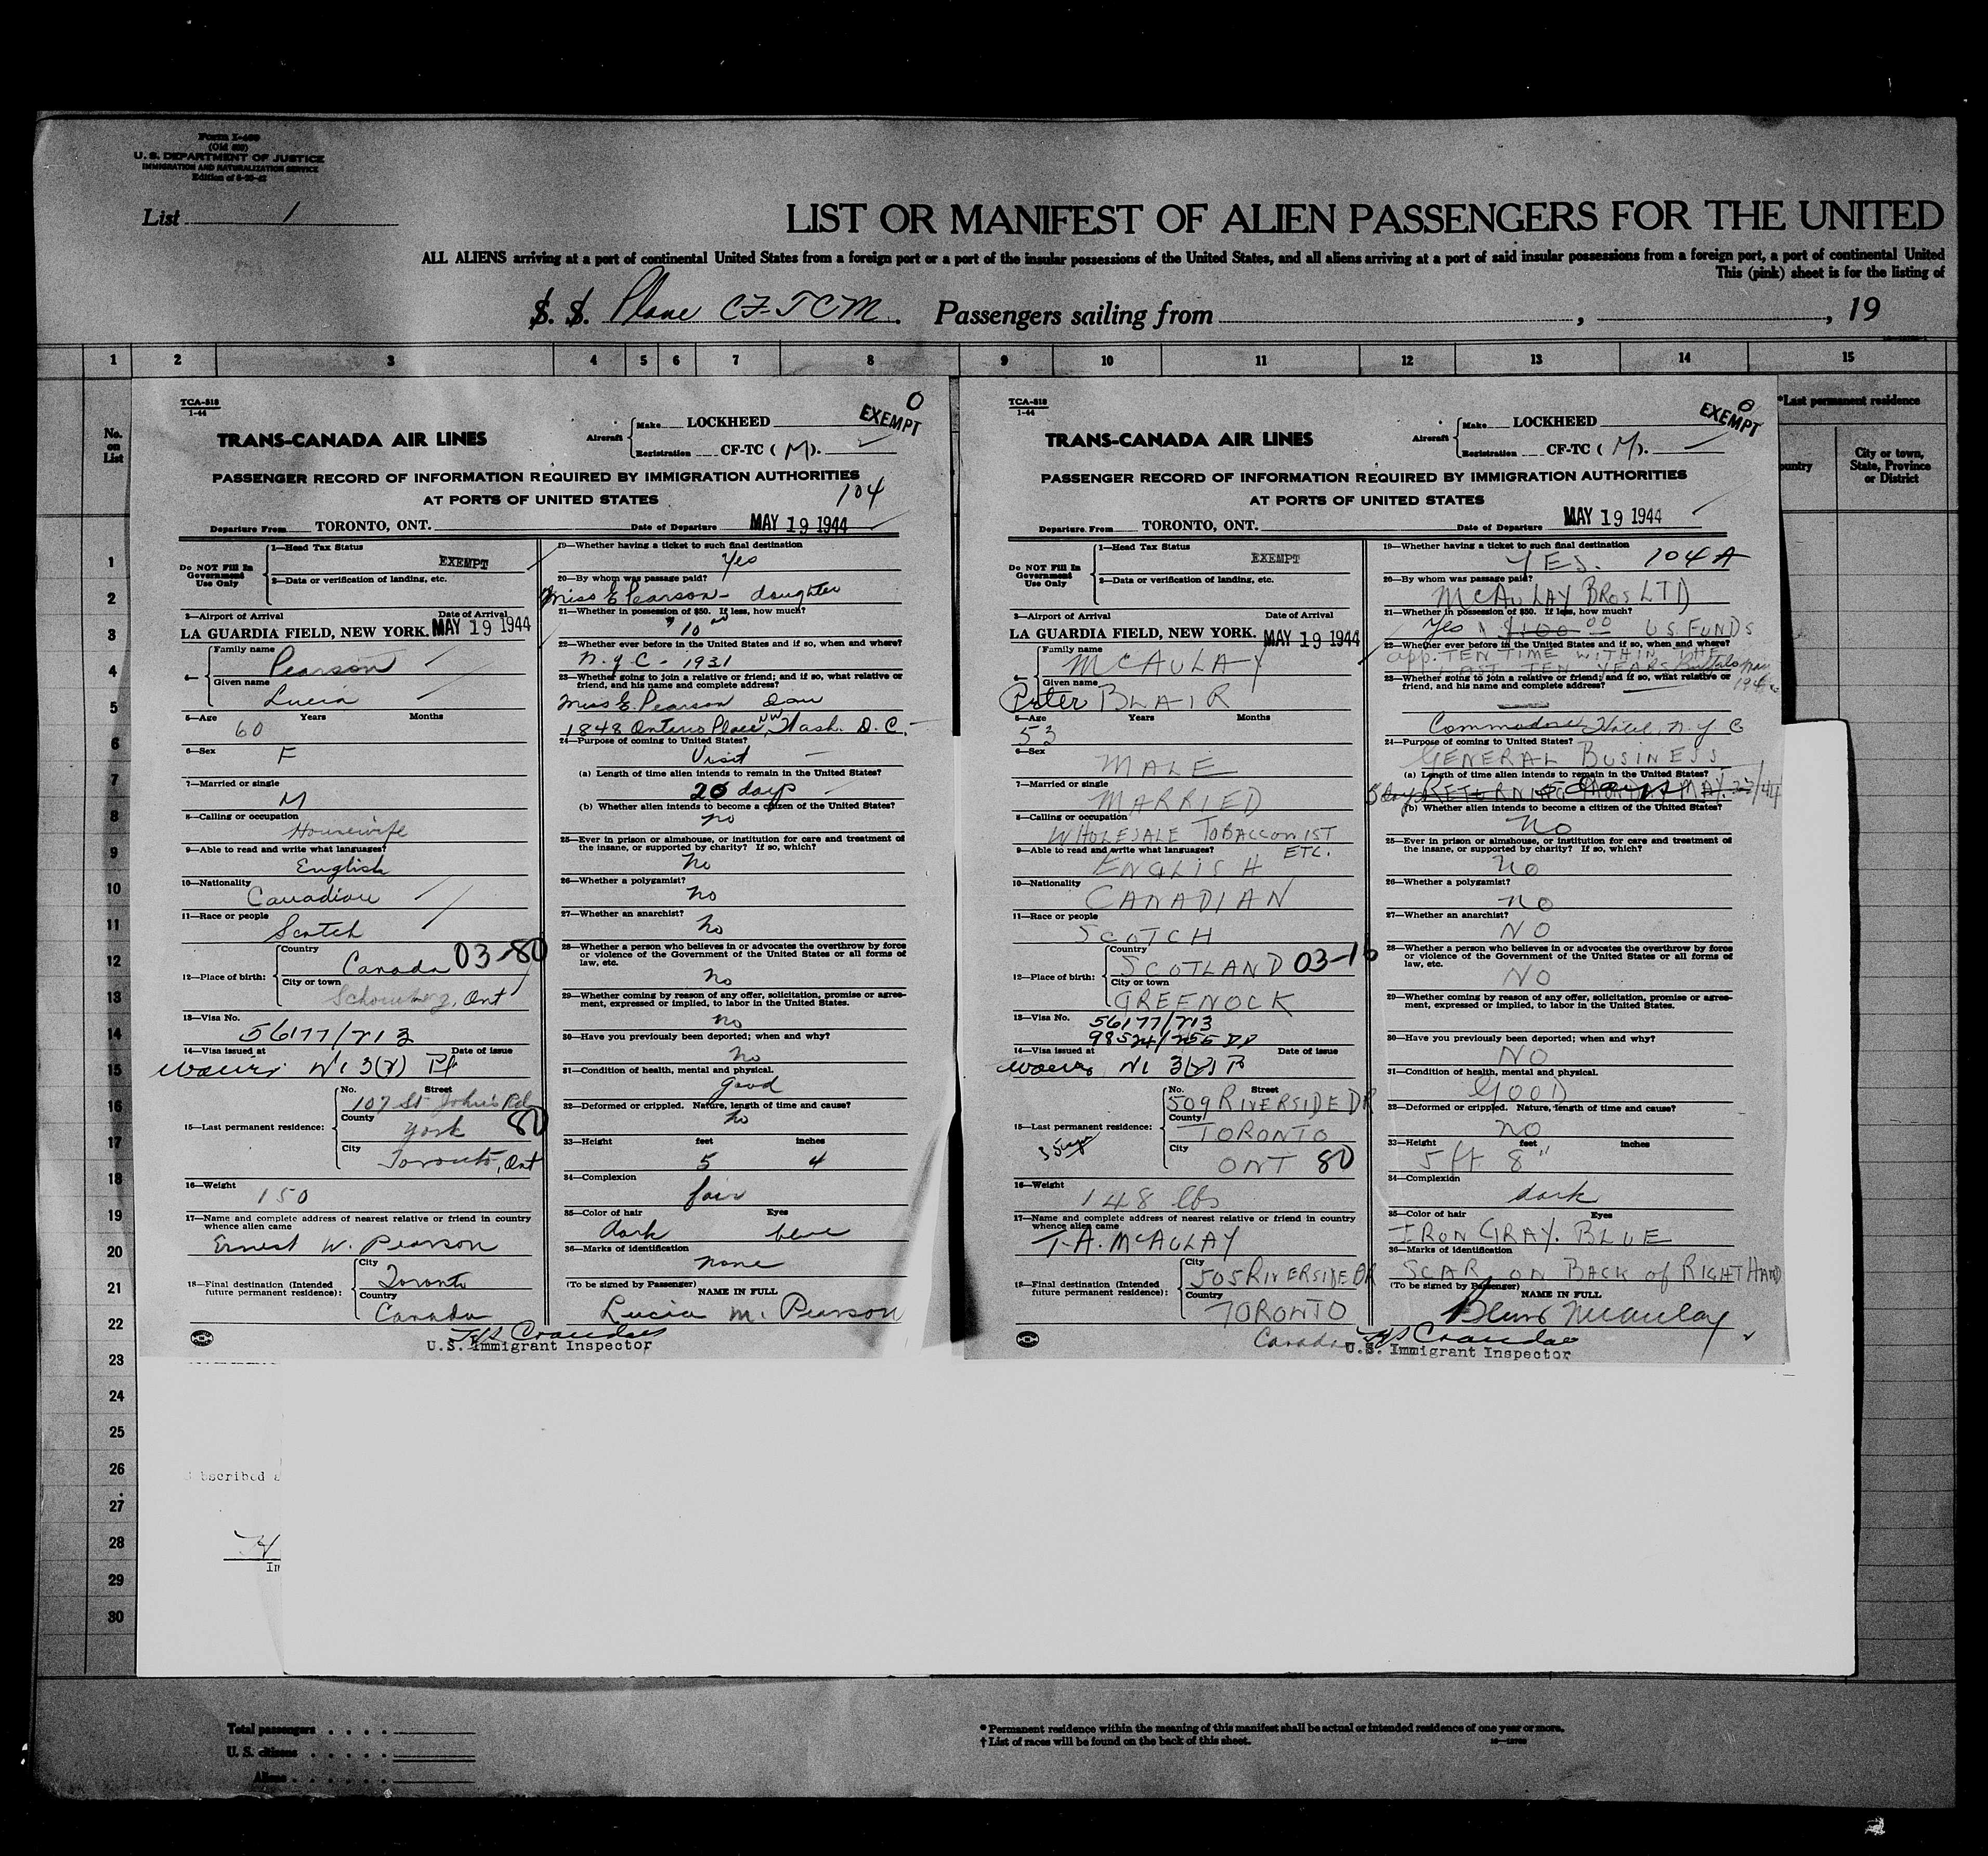 Form I-466
(Old 500)
U. S. DEPARTMENT OF JUSTICE
IMMIGRATION AND NATURALIZATION SERVICE
List 1
LIST OR MANIFEST OF ALIEN PASSENGERS FOR THE UNITED
ALL ALIENS arriving at a port of continental United States from a foreign port or a port of the insular possessions of the United States, and all aliens arriving at a port of said insular possessions from a foreign port, a port of continental United
This (pink) sheet is for the listing of
S. S. Plane CF-TCM. Passengers sailing from , , 19
1 2 3 4 5 6 7 8 9 10 11 12 13 14 15
No. on List
*Last permanent residence
ountry
City or town, State, Province or District
TCA-818
1-44
0
EXEMPT
TRANS-CANADA AIR LINES
Aircraft
Make LOCKHEED
Registration CF-TC ( M ).
PASSENGER RECORD OF INFORMATION REQUIRED BY IMMIGRATION AUTHORITIES
AT PORTS OF UNITED STATES
104
Departure From TORONTO, ONT. Date of Departure MAY 19 1944
Do NOT Fill In Government Use Only
1—Head Tax Status EXEMPT
2—Data or verification of landing, etc.
3—Airport of Arrival Date of Arrival
LA GUARDIA FIELD, NEW YORK. MAY 19 1944
4— Family name
Pearson
Given name
Lucia
5—Age Years Months
60
6—Sex
F
7—Married or single
M
8—Calling or occupation
Housewife
9—Able to read and write what languages?
English
10—Nationality
Canadian
11—Race or people
Scotch
12—Place of birth:
Country
Canada 03-80
City or town
Schomberg, Ont
13—Visa No.
56177/213
14—Visa issued at Date of issue
15—Last permanent residence:
No. Street
107 St John's Rd
County
York 80
City
Toronto, Ont
16—Weight
150
17—Name and complete address of nearest relative or friend in country whence alien came
Ernest W. Pearson
18—Final destination (Intended future permanent residence):
City
Toronto
Country
Canada
19—Whether having a ticket to such final destination
Yes
20—By whom was passage paid?
Miss E Pearson - daughter
21—Whether in possession of $50. If less, how much?
$10.00
22—Whether ever before in the United States and if so, when and where?
N.Y.C - 1931
23—Whether going to join a relative or friend; and if so, what relative or friend, and his name and complete address?
Miss E. Pearson dau
1848 Ontario Place NW, Wash. D. C.
24—Purpose of coming to United States?
Visit
(a) Length of time alien intends to remain in the United States?
20 days
(b) Whether alien intends to become a citizen of the United States?
no
25—Ever in prison or almshouse, or institution for care and treatment of the insane, or supported by charity? If so, which?
No
26—Whether a polygamist?
no
27—Whether an anarchist?
No
28—Whether a person who believes in or advocates the overthrow by force or violence of the Government of the United States or all forms of law, etc.
No
29—Whether coming by reason of any offer, solicitation, promise or agreement, expressed or implied, to labor in the United States.
no
30—Have you previously been deported; when and why?
No
31—Condition of health, mental and physical.
Good
32—Deformed or crippled. Nature, length of time and cause?
No
33—Height feet inches
5 4
34—Complexion
fair
35—Color of hair Eyes
dark blue
36—Marks of identification
none
(To be signed by Passenger) NAME IN FULL
Lucia M. Pearson
U.S. Immigrant Inspector
TCA-818
1-44
0
EXEMPT
TRANS-CANADA AIR LINES
Aircraft
Make LOCKHEED
Registration CF-TC ( M ).
PASSENGER RECORD OF INFORMATION REQUIRED BY IMMIGRATION AUTHORITIES
AT PORTS OF UNITED STATES
Departure From TORONTO, ONT. Date of Departure MAY 19 1944
Do NOT Fill In Government Use Only
1—Head Tax Status EXEMPT
2—Data or verification of landing, etc.
3—Airport of Arrival Date of Arrival
LA GUARDIA FIELD, NEW YORK. MAY 19 1944
4— Family name
MCAULAY
Given name
Peter BLAIR
5—Age Years Months
53
6—Sex
MALE
7—Married or single
MARRIED
8—Calling or occupation
WHOLESALE TOBACCONIST ETC.
9—Able to read and write what languages?
ENGLISH
10—Nationality
CANADIAN
11—Race or people
SCOTCH
12—Place of birth:
Country
SCOTLAND 03-10
City or town
GREENOCK
13—Visa No.
56177/213
98524/255
14—Visa issued at Date of issue
15—Last permanent residence:
No. Street
509 RIVERSIDE DR
County
TORONTO
City
ONT 80
16—Weight
148 lbs
17—Name and complete address of nearest relative or friend in country whence alien came
T.A. MCAULAY
18—Final destination (Intended future permanent residence):
City
505 RIVERSIDE DR
Country
TORONTO
Canada
19—Whether having a ticket to such final destination
YES. 104A
20—By whom was passage paid?
MCAULAY BROS LTD
21—Whether in possession of $50. If less, how much?
Yes $100.00 U.S. FUNDS
22—Whether ever before in the United States and if so, when and where?
app. TEN TIME WITHIN THE
LAST TEN YEARS Buffalo
23—Whether going to join a relative or friend; and if so, what relative or friend, and his name and complete address?
Commodore Hotel, N. Y. C
24—Purpose of coming to United States?
GENERAL BUSINESS
(a) Length of time alien intends to remain in the United States?
(b) Whether alien intends to become a citizen of the United States?
NO
25—Ever in prison or almshouse, or institution for care and treatment of the insane, or supported by charity? If so, which?
No
26—Whether a polygamist?
NO
27—Whether an anarchist?
NO
28—Whether a person who believes in or advocates the overthrow by force or violence of the Government of the United States or all forms of law, etc.
NO
29—Whether coming by reason of any offer, solicitation, promise or agreement, expressed or implied, to labor in the United States.
30—Have you previously been deported; when and why?
NO
31—Condition of health, mental and physical.
GOOD
32—Deformed or crippled. Nature, length of time and cause?
NO
33—Height feet inches
5 ft 8"
34—Complexion
dark
35—Color of hair Eyes
IRON GRAY. BLUE
36—Marks of identification
SCAR ON BACK of RIGHT HAND
(To be signed by Passenger) NAME IN FULL
Blair McAulay
U.S. Immigrant Inspector
1
2
3
4
5
6
7
8
9
10
11
12
13
14
15
16
17
18
19
20
21
22
23
24
25
26
27
28
29
30
bscribed
In
Total passengers
U. S. citizens
Aliens
* Permanent residence within the meaning of this manifest shall be actual or intended residence of one year or more.
† List of races will be found on the back of this sheet.